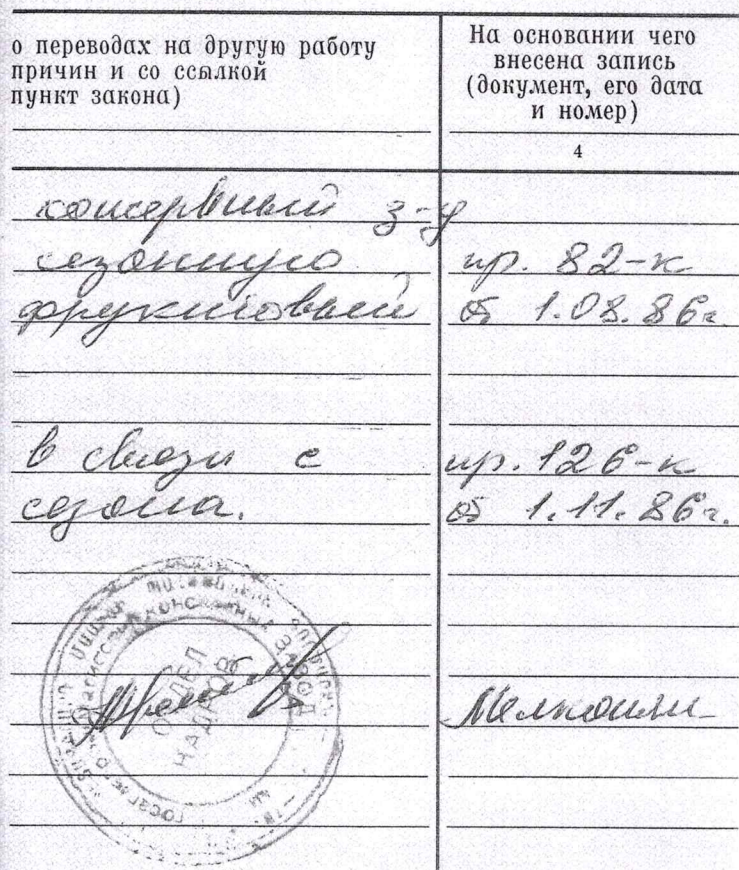 о переводах на другую работу
причин и со ссылкой
пункт закона)
На основании чего
внесена запись
(документ, его дата
и номер)
4
консервный з-д
сезонную пр. 82-к
фруктовый от 1.08.86г.
в связи с пр. 126-к
сезона. от 1.11.86г.
КОНСЕРВНЫЙ ЗАВОД
ОТДЕЛ
КАДРОВ